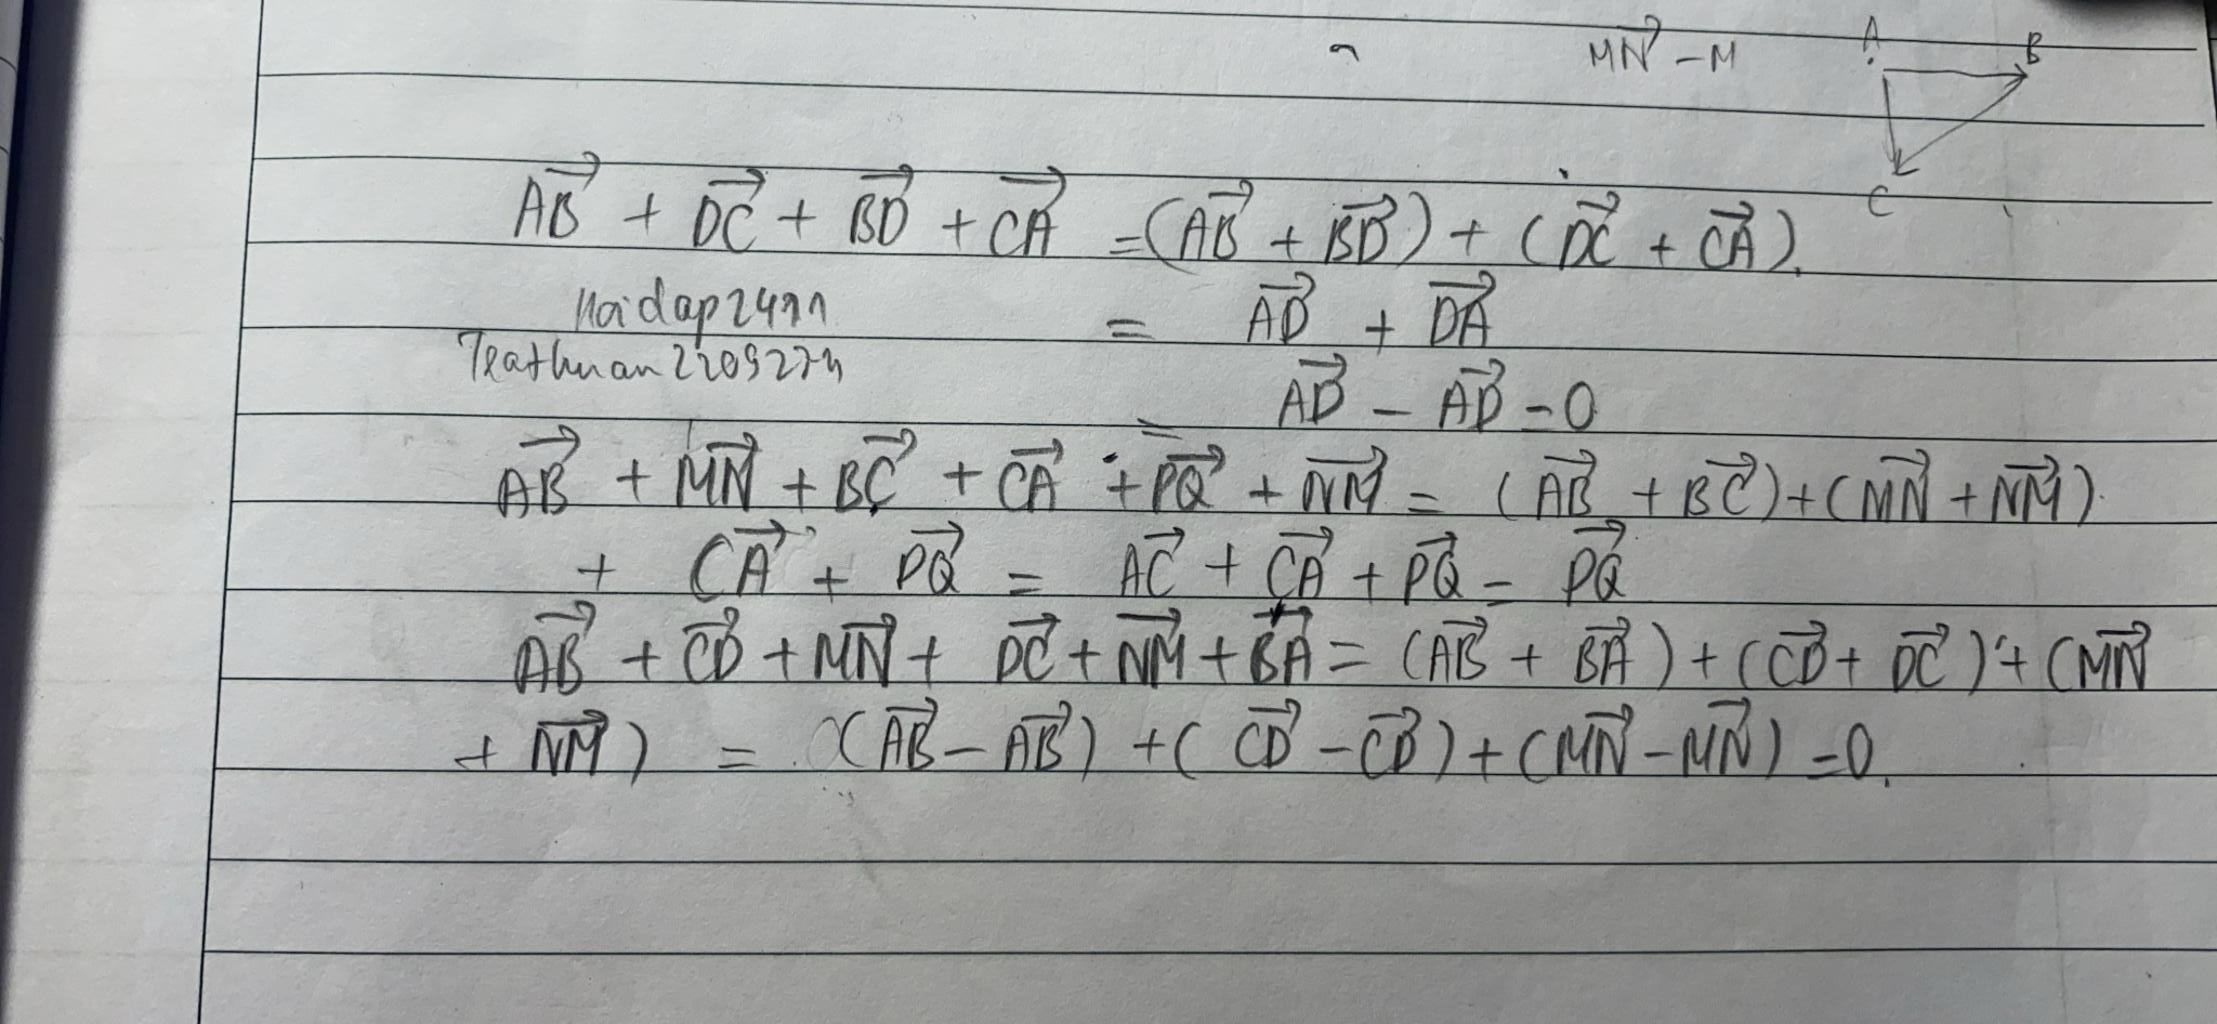 MN⃗ - M A B
C
AB⃗ + DC⃗ + BD⃗ + CA⃗ = (AB⃗ + BD⃗) + (DC⃗ + CA⃗).
Hoidap2411 = AD⃗ + DA⃗
= AD⃗ - AD⃗ = 0
AB⃗ + MN⃗ + BC⃗ + CA⃗ + PQ⃗ + NM⃗ = (AB⃗ + BC⃗) + (MN⃗ + NM⃗).
+ CA⃗ + PQ⃗ = AC⃗ + CA⃗ + PQ⃗ = PQ⃗
AB⃗ + CD⃗ + MN⃗ + DC⃗ + NM⃗ + BA⃗ = (AB⃗ + BA⃗) + (CD⃗ + DC⃗) + (MN⃗
+ NM⃗) = (AB⃗ - AB⃗) + (CD⃗ - CD⃗) + (MN⃗ - MN⃗) = 0.